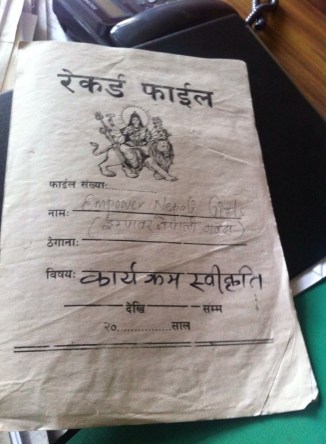 रेकर्ड फाईल
फाईल संख्या:
नाम: Empower Nepali Girls
(इम्पावर नेपाली गर्ल्स)
ठेगाना:
विषय: कार्यक्रम स्वीकृति
देखि सम्म
२०...............साल